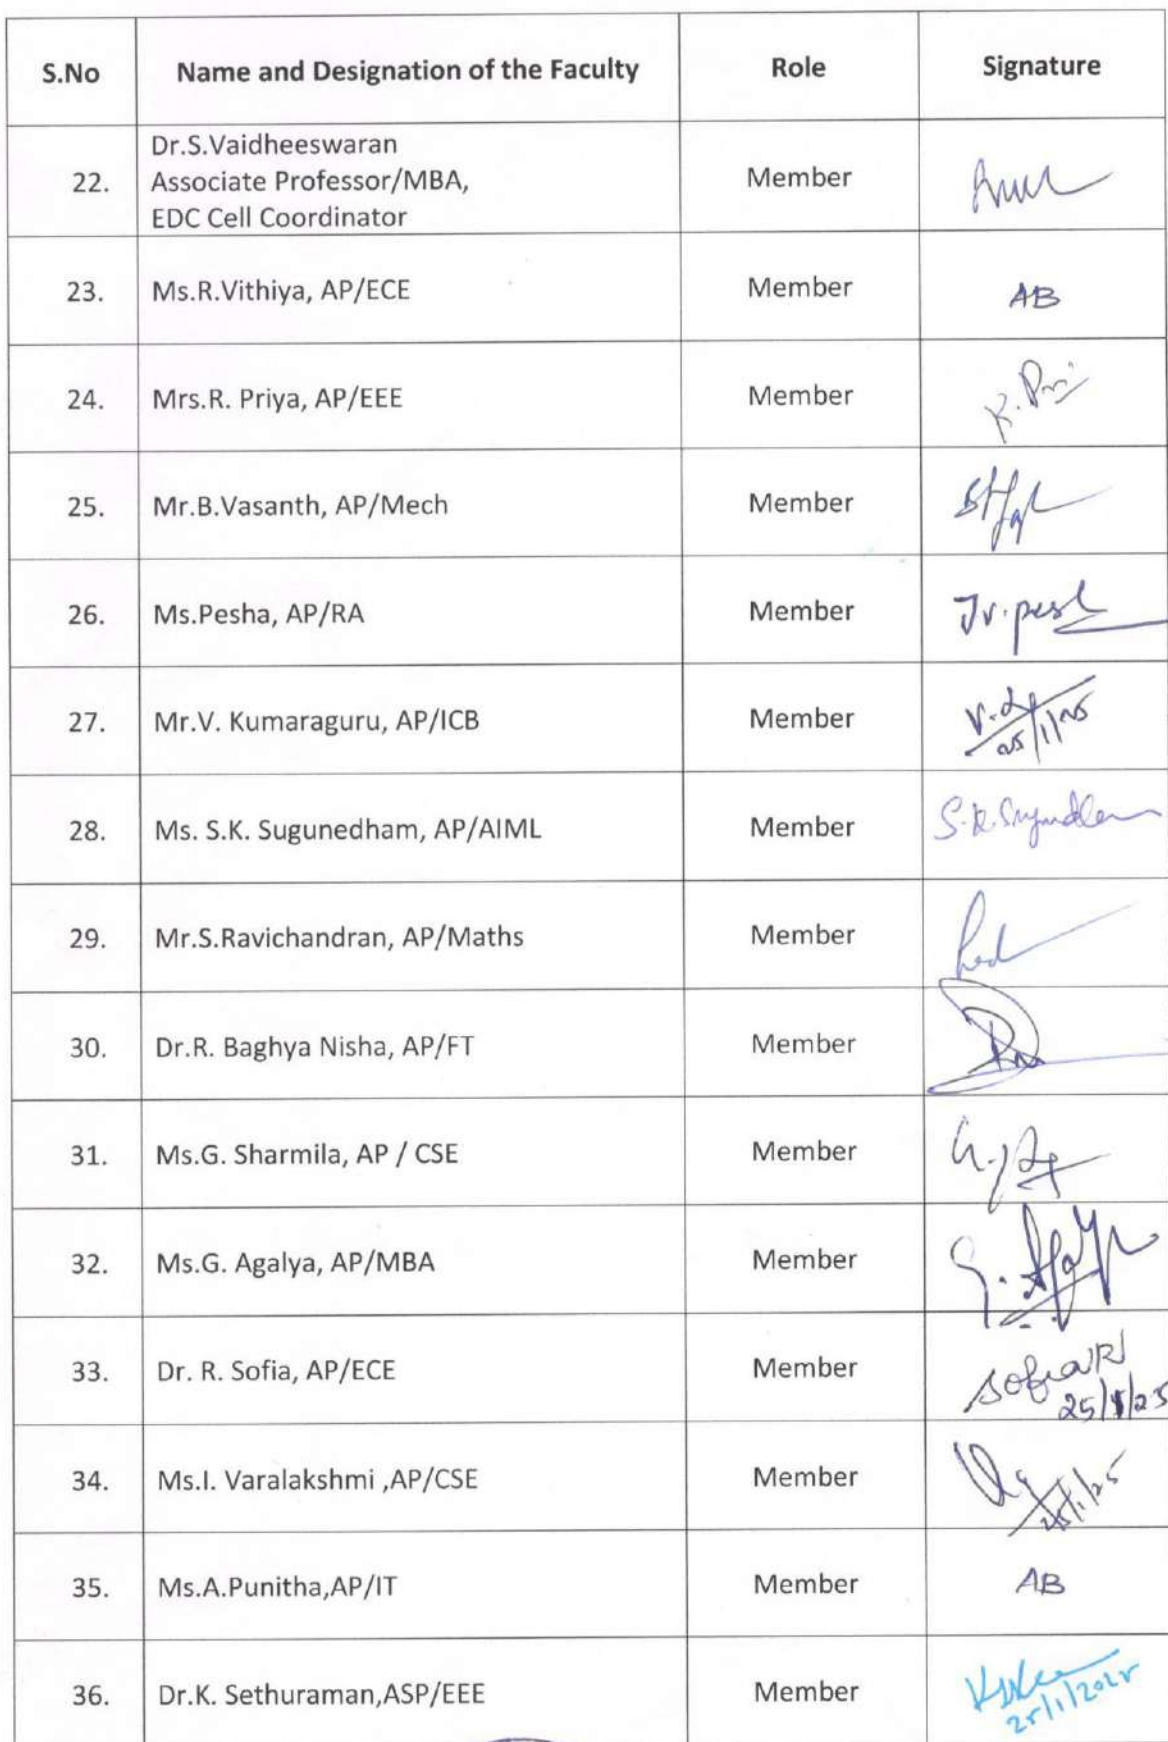 S.No Name and Designation of the Faculty Role Signature
Dr.S.Vaidheeswaran
22. Associate Professor/MBA, Member
EDC Cell Coordinator
23. Ms.R.Vithiya, AP/ECE Member AB
24. Mrs.R. Priya, AP/EEE Member
25. Mr.B.Vasanth, AP/Mech Member
26. Ms.Pesha, AP/RA Member
27. Mr.V. Kumaraguru, AP/ICB Member
25/1/25
28. Ms. S.K. Sugunedham, AP/AIML Member
29. Mr.S.Ravichandran, AP/Maths Member
30. Dr.R. Baghya Nisha, AP/FT Member
31. Ms.G. Sharmila, AP / CSE Member
32. Ms.G. Agalya, AP/MBA Member
33. Dr. R. Sofia, AP/ECE Member Sofia R
25/1/25
34. Ms.I. Varalakshmi ,AP/CSE Member
25/1/25
35. Ms.A.Punitha,AP/IT Member AB
36. Dr.K. Sethuraman,ASP/EEE Member
25/1/2025